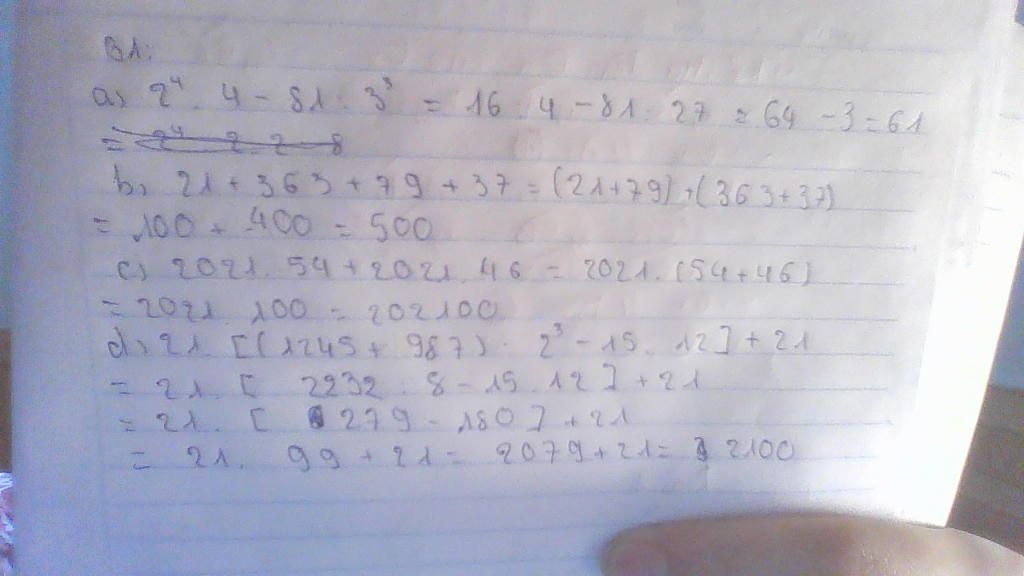 B1:
a) 2⁴ . 4 - 81 : 3³ = 16 . 4 - 81 : 27 = 64 - 3 = 61
b) 21 + 363 + 79 + 37 = (21+79) + (363+37)
= 100 + 400 = 500
c) 2021 . 54 + 2021 . 46 = 2021 . (54+46)
= 2021 . 100 = 202100
d) 21 . [(1245 + 987) : 2³ - 15 . 12] + 21
= 21 . [ 2232 : 8 - 15 . 12 ] + 21
= 21 . [ 279 - 180 ] + 21
= 21 . 99 + 21 = 2079 + 21 = 2100